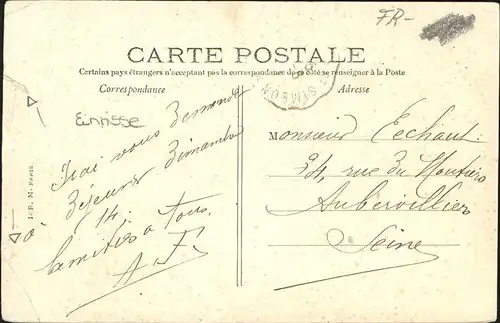 FR-
CARTE POSTALE
Certains pays étrangers n'acceptant pas la correspondance de ce côté se renseigner à la Poste
Correspondance
Adresse
Ennisse
J'irai vous demander
à déjeuner dimanche
14.
Amitiés à tous.
A F
Monsieur Echaut
34, rue du Moutiers
Aubervilliers
Seine
SIMÉON
J. P. M. PARIS.